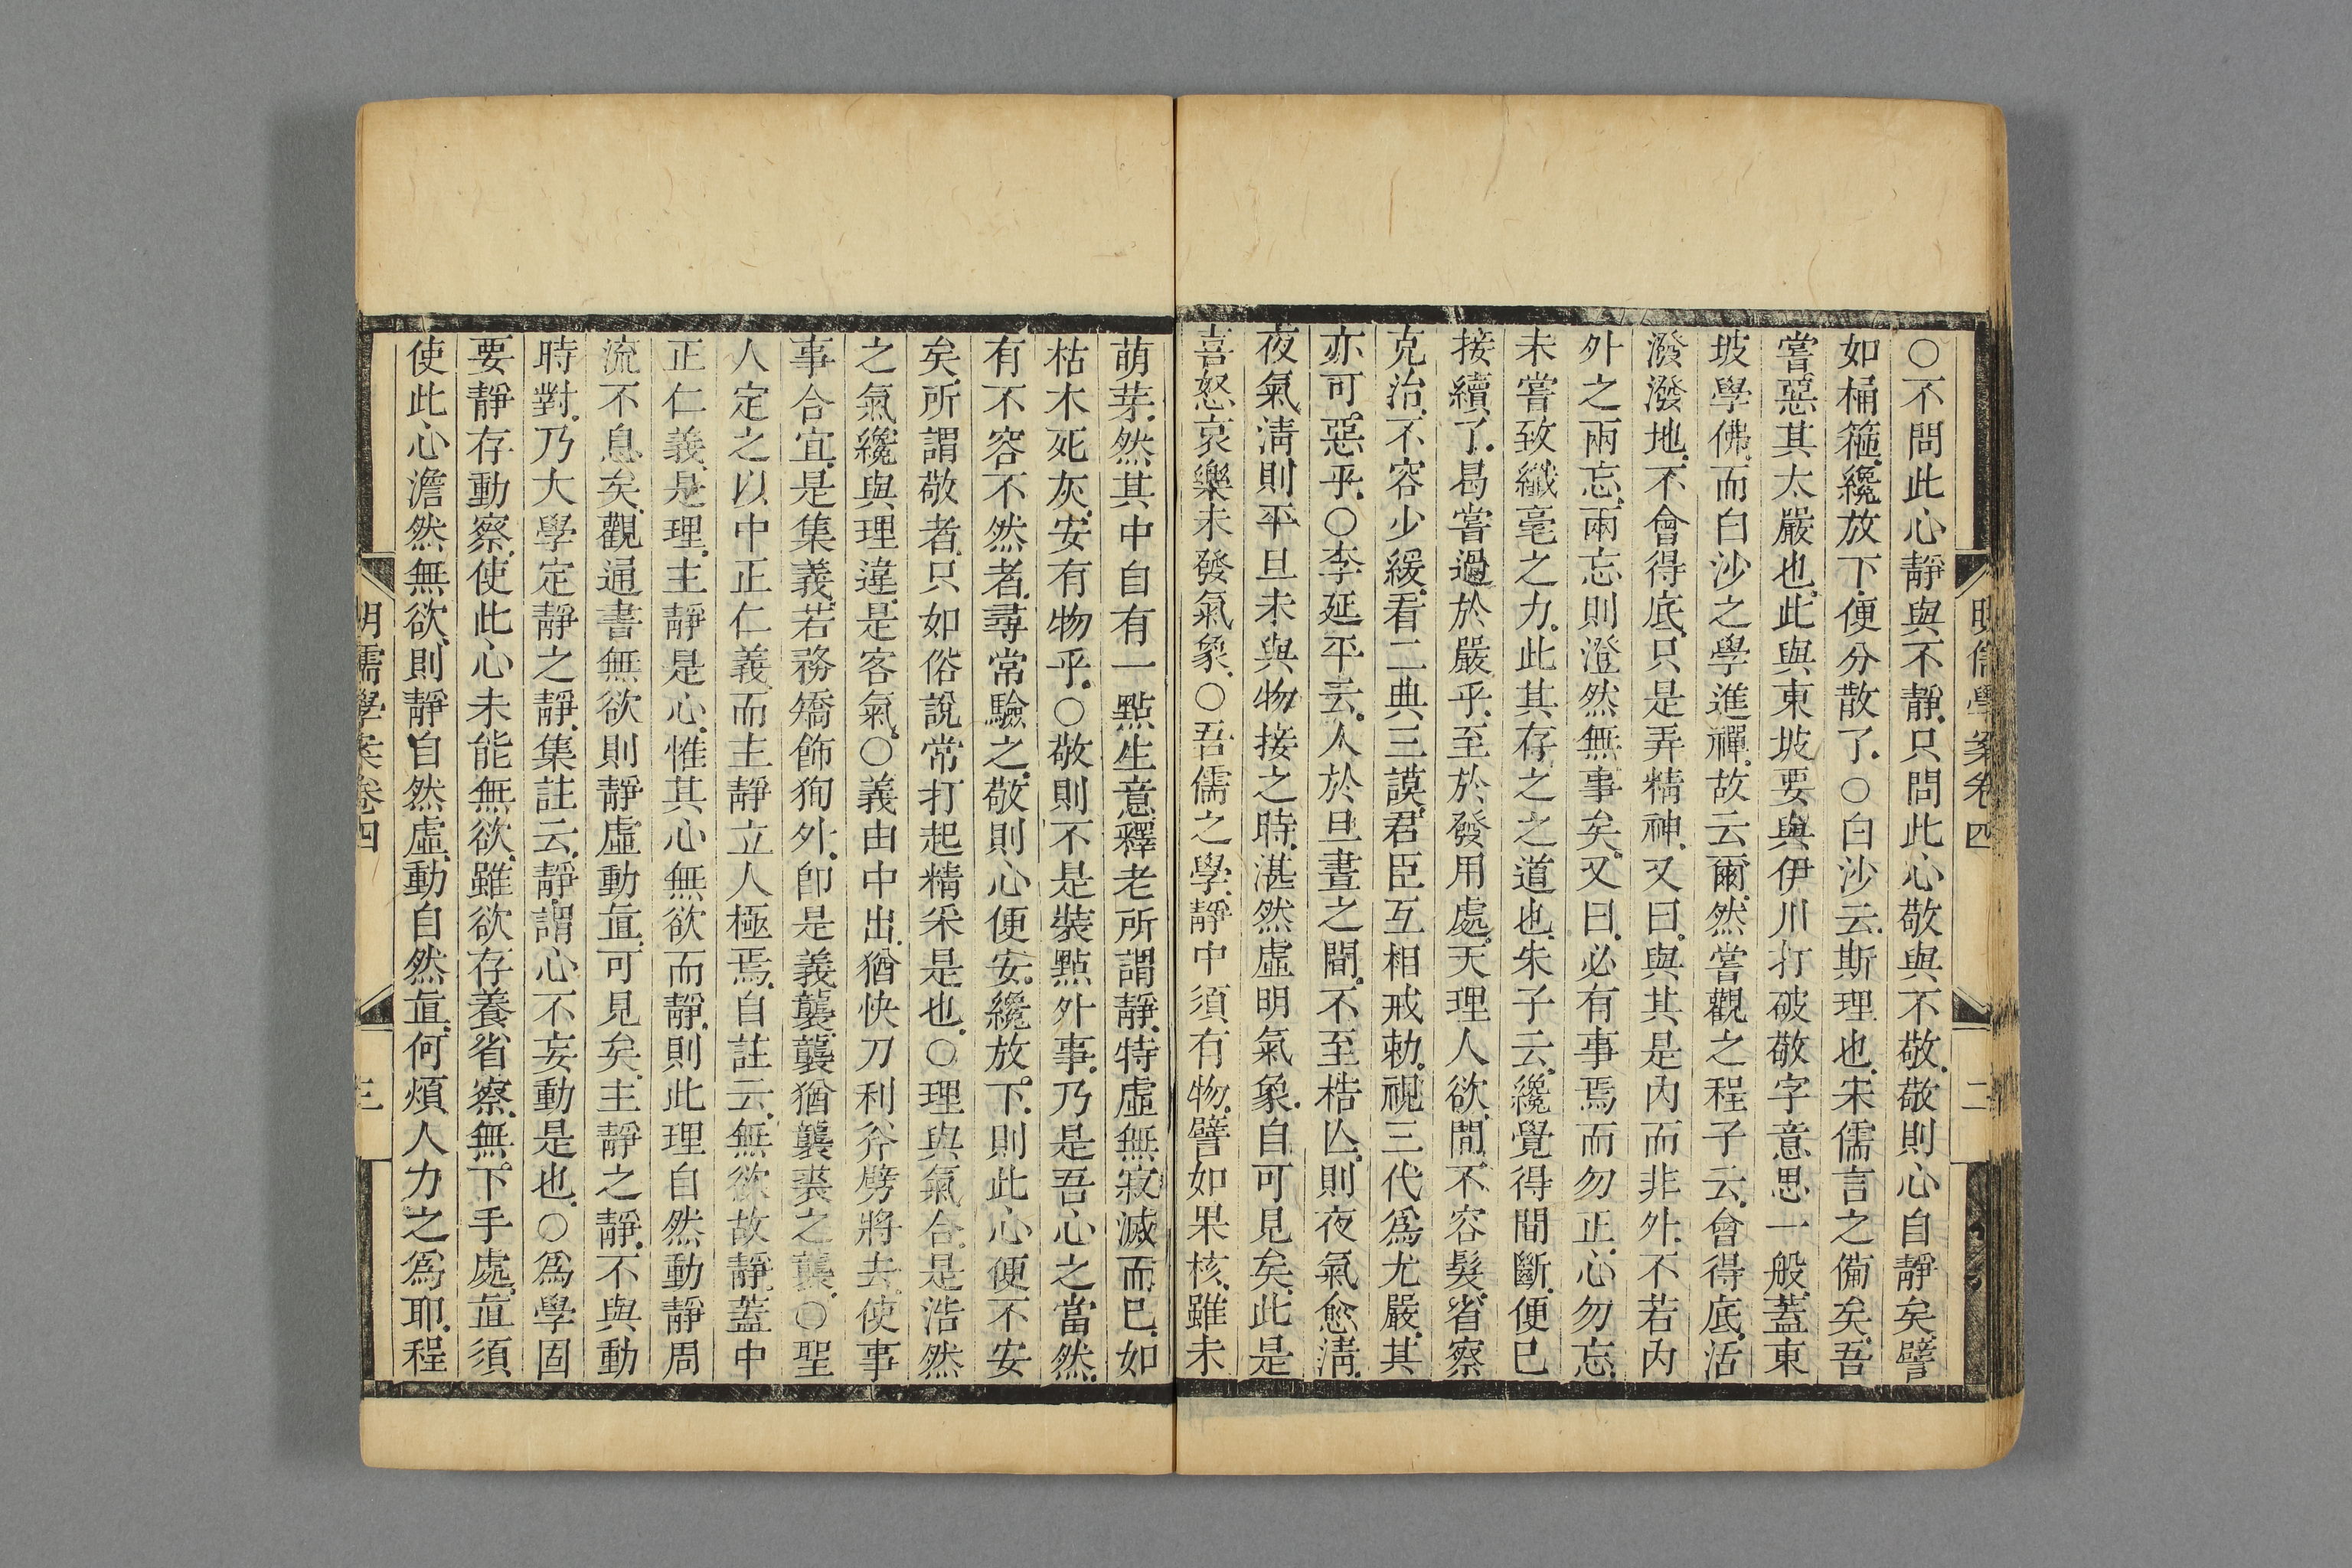 明儒學案卷四
二
○不問此心靜與不靜只問此心敬與不敬敬則心自靜矣譬
如桶箍纔放下便分散了○白沙云斯理也宋儒言之備矣吾
嘗惡其太嚴也此與東坡要與伊川打破敬字意思一般蓋東
坡學佛而白沙之學進禪故云爾然嘗觀之程子云會得底活
潑潑地不會得底只是弄精神又曰與其是內而非外不若內
外之兩忘兩忘則澄然無事矣又曰必有事焉而勿正心勿忘
未嘗致纖毫之力此其存之之道也朱子云纔覺得間斷便已
接續了曷嘗過於嚴乎至於發用處天理人欲間不容髮省察
克治不容少緩看二典三謨君臣互相戒勅視三代爲尤嚴其
亦可惡乎○李延平云人於旦晝之間不至梏亾則夜氣愈淸
夜氣淸則平旦未與物接之時湛然虛明氣象自可見矣此是
喜怒哀樂未發氣象○吾儒之學靜中須有物譬如果核雖未
萌芽然其中自有一點生意釋老所謂靜特虛無寂滅而已如
枯木死灰安有物乎○敬則不是裝點外事乃是吾心之當然
有不容不然者尋常驗之敬則心便安纔放下則此心便不安
矣所謂敬者只如俗說常打起精采是也○理與氣合是浩然
之氣纔與理違是客氣○義由中出猶快刀利斧劈將去使事
事合宜是集義若務矯飾徇外卽是義襲襲猶襲裘之襲○聖
人定之以中正仁義而主靜立人極焉自註云無欲故靜蓋中
正仁義是理主靜是心惟其心無欲而靜則此理自然動靜周
流不息矣觀通書無欲則靜虛動直可見矣主靜之靜不與動
時對乃大學定靜之靜集註云靜謂心不妄動是也○爲學固
要靜存動察使此心未能無欲雖欲存養省察無下手處直須
使此心澹然無欲則靜自然虛動自然直何煩人力之爲耶程
明儒學案卷四
三